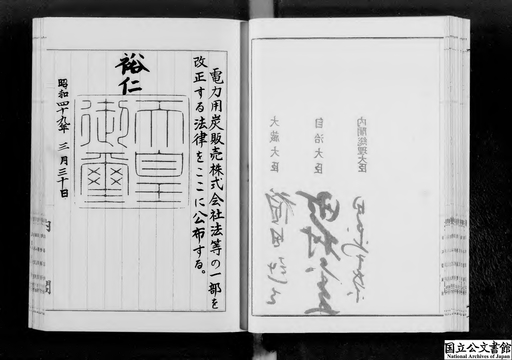 電力用炭販売株式会社法等の一部を
改正する法律をここに公布する。
裕仁
天皇
御璽
昭和四十九年三月三十日
内閣総理大臣
自治大臣
大蔵大臣
国立公文書館
National Archives of Japan